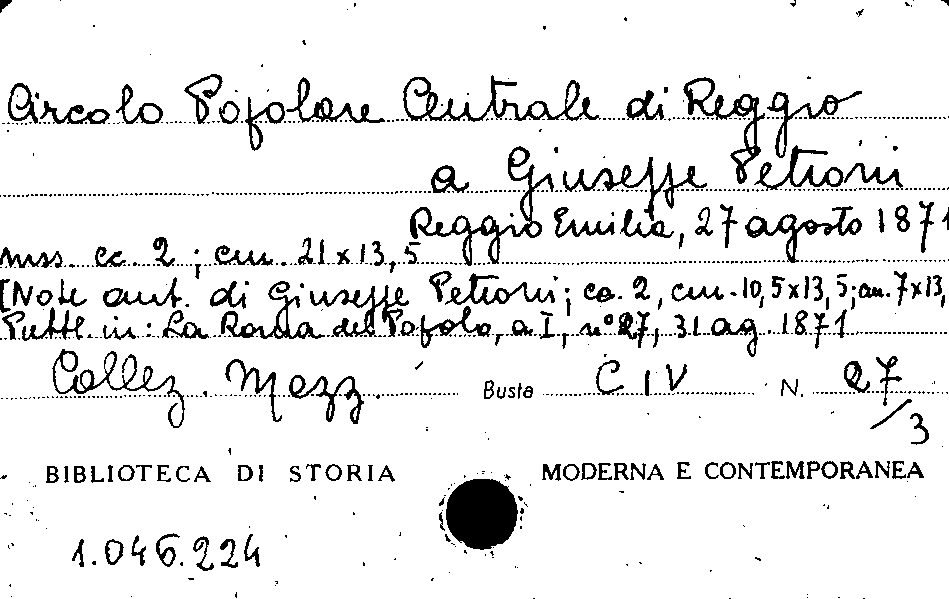 Circolo Popolare Centrale di Reggio
a Giuseppe Petroni
Reggio Emilia, 27 agosto 1871
mss. cc. 2 ; cm. 21 x 13,5
[Note aut. di Giuseppe Petroni; cc. 2, cm. 10,5x13,5; cm. 7x13,
Pubbl. in: La Roma del Popolo, a I, n° 27, 31 ag. 1871
Collez. Mazz. Busta C IV N. 27/3
BIBLIOTECA DI STORIA MODERNA E CONTEMPORANEA
1.046.224